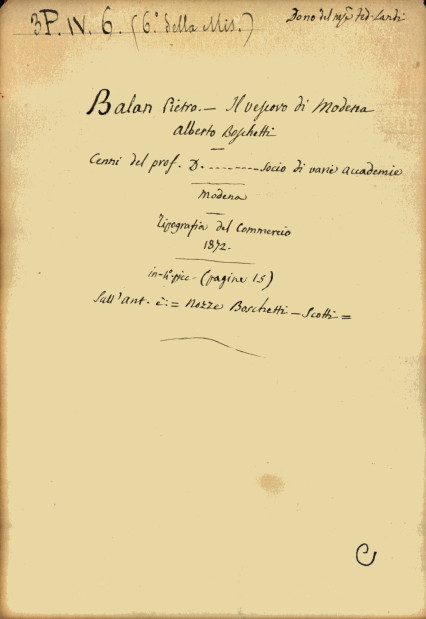 3P. IV. 6. (6.° della Mis.)
Dono del
Balan Pietro. — Il vescovo di Modena
Alberto Boschetti
Cenni del prof. D. --------- socio di varie accademie
Modena
Tipografia del Commercio
1872.
in-4° picc. - (pagine 15)
Sull'ant. è: = Nozze Boschetti — Scotti =
C